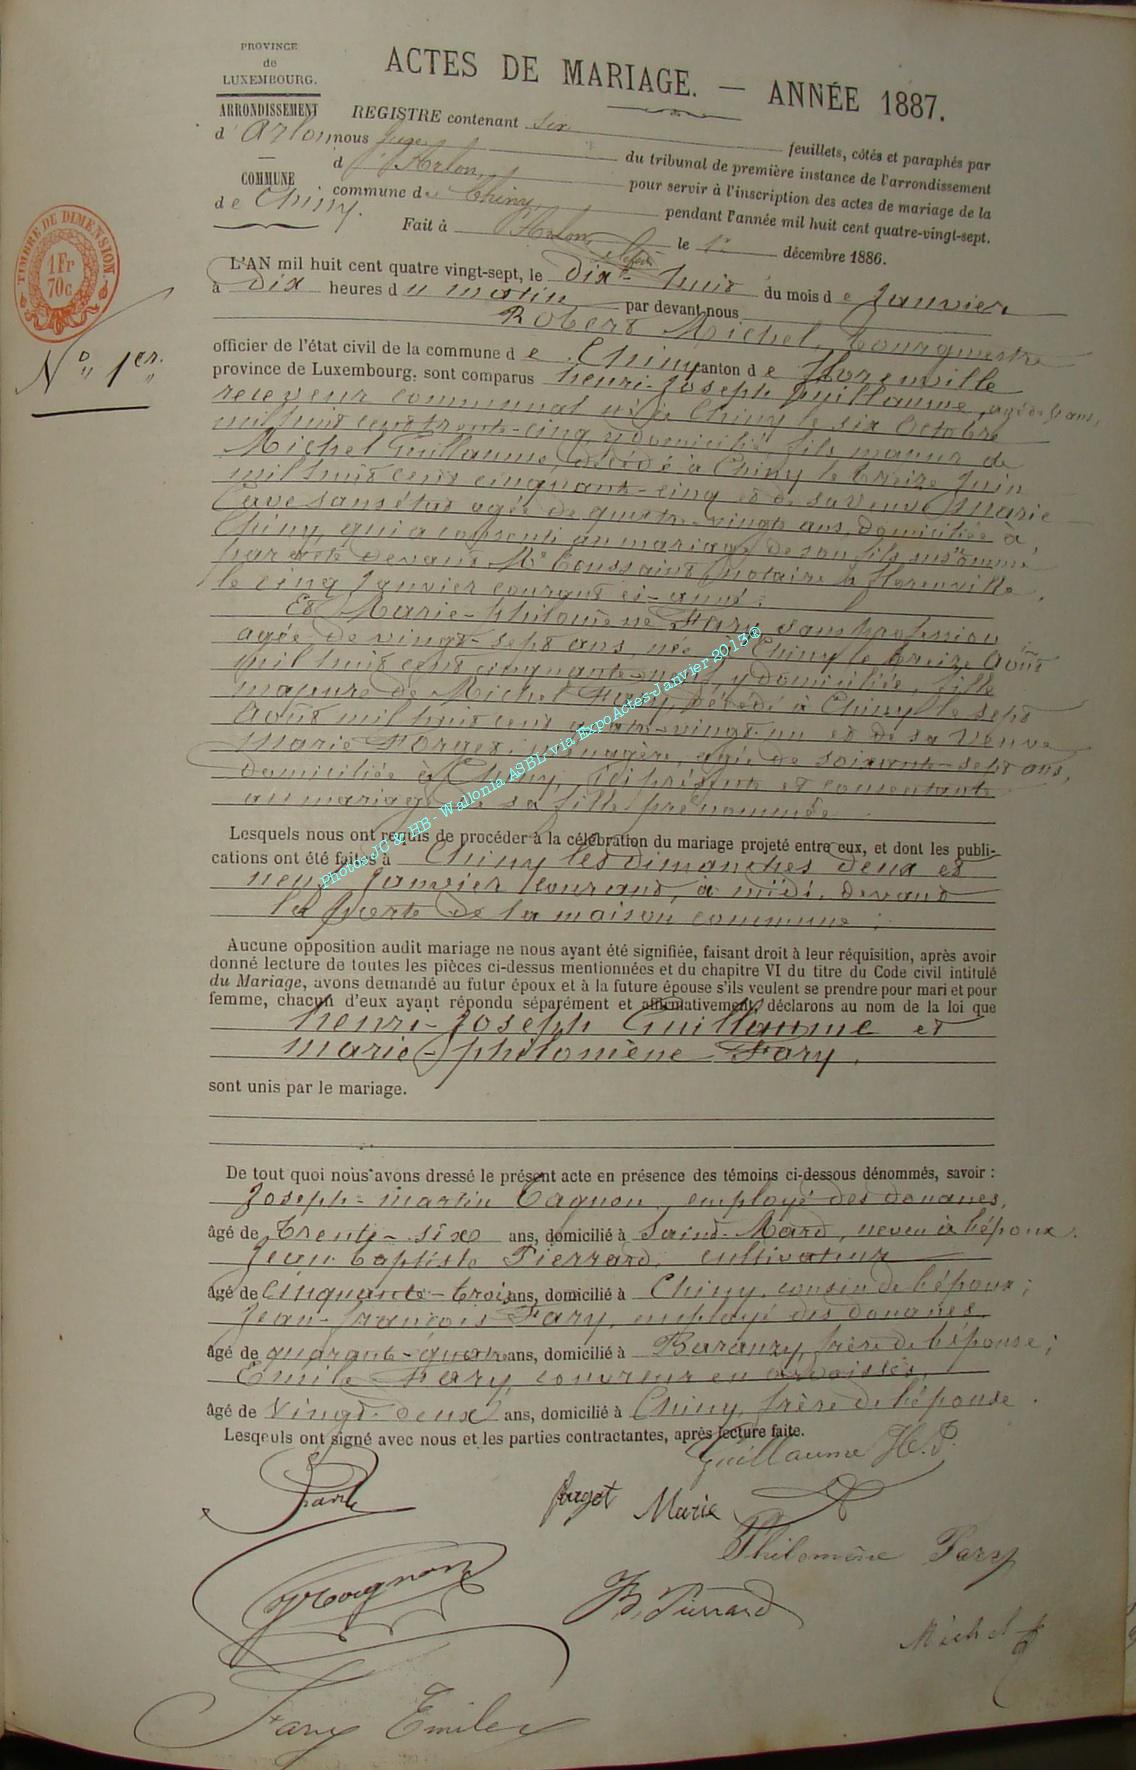 PROVINCE
de
LUXEMBOURG.
ARRONDISSEMENT
d'Arlon
COMMUNE
de Chiny.
ACTES DE MARIAGE. — ANNÉE 1887.
REGISTRE contenant six feuillets, côtés et paraphés par
nous Juge du tribunal de première instance de l'arrondissement
d'Arlon, pour servir à l'inscription des actes de mariage de la
commune de Chiny, pendant l'année mil huit cent quatre-vingt-sept.
Fait à Arlon, le 1er décembre 1886.
TIMBRE DE DIMENSION.
1 Fr
70c
No 1er.
L'AN mil huit cent quatre vingt-sept, le dix-huit du mois de Janvier
à dix heures du matin par devant nous
Robert Michel, bourgmestre
officier de l'état civil de la commune de Chiny canton de Florenville
province de Luxembourg, sont comparus henri-Joseph Guillaume, agé de 51 ans,
receveur communal né à Chiny le six Octobre
mil huit cent trente-cinq, y domicilié, fils majeur de
Michel Guillaume, décédé à Chiny le treize Juin
mil huit cent cinquante-cinq et de sa veuve Marie
Cave sans état agée de quatre-vingt ans, domiciliée à
Chiny, qui a consenti au mariage de son fils susnommé
par acte devant Me Toussaint notaire à florenville
le cinq Janvier courant ci-annexé.
Et Marie-philomène Fary, sans profession
agée de vingt-sept ans, née à Chiny le treize Août
mil huit cent cinquante-neuf, y domiciliée, fille
majeure de Michel Fary, décédé à Chiny le sept
Août mil huit cent quatre-vingt-un et de sa veuve
Marie Forget, ménagère, agée de soixante-sept ans,
domiciliée à Chiny, ici présente et consentante
au mariage de sa fille prénommée.
Lesquels nous ont requis de procéder à la célébration du mariage projeté entre eux, et dont les publi-
cations ont été faites à Chiny les dimanches deux et
neuf Janvier courant, à midi, devant
la porte de la maison commune;
Aucune opposition audit mariage ne nous ayant été signifiée, faisant droit à leur réquisition, après avoir
donné lecture de toutes les pièces ci-dessus mentionnées et du chapitre VI du titre du Code civil intitulé
du Mariage, avons demandé au futur époux et à la future épouse s'ils veulent se prendre pour mari et pour
femme, chacun d'eux ayant répondu séparément et affirmativement, déclarons au nom de la loi que
henri-Joseph Guillaume et
marie-philomène Fary,
sont unis par le mariage.
De tout quoi nous avons dressé le présent acte en présence des témoins ci-dessous dénommés, savoir :
Joseph-martin Cagnon, employé des douanes,
âgé de trente-six ans, domicilié à Saint-Mard, neveu à l'époux.
Jean-baptiste Pierrard, cultivateur
âgé de cinquante-trois ans, domicilié à Chiny, cousin de l'époux;
Jean-françois Fary, employé des douanes,
âgé de quarante-quatre ans, domicilié à Baranzy, frère de l'épouse;
Emile Fary, couvreur en ardoises,
âgé de vingt-deux ans, domicilié à Chiny, frère de l'épouse.
Lesqeuls ont signé avec nous et les parties contractantes, après lecture faite.
Guillaume H.J.
forget Marie
Philomène Fary
B. Pierrard
Michel
Fary Emile
Photos JC & HB - Wallonia ASBL via ExpoActes-Janvier 2013®